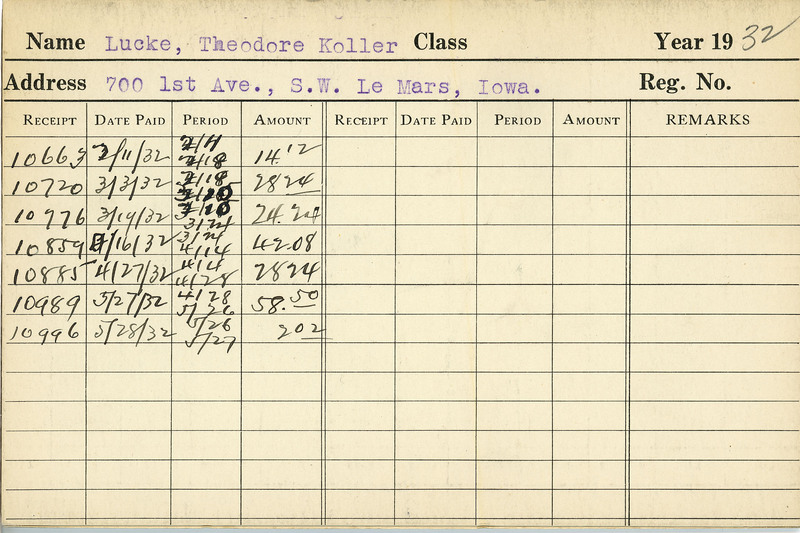 Name Lucke, Theodore Koller Class Year 19 32
Address 700 1st Ave., S.W. Le Mars, Iowa. Reg. No.
RECEIPT DATE PAID PERIOD AMOUNT RECEIPT DATE PAID PERIOD AMOUNT REMARKS
2/4
10663 2/11/32 2/18 14.12
2/18
10720 3/3/32 28 24
10776 3/19/32 3/24 24.24
3/24
10859 4/16/32 4/14 42.08
4/14
10885 4/27/32 4/28 28 24
4/28
10989 5/27/32 5/26 58.50
5/26
10996 5/28/32 5/27 2 02